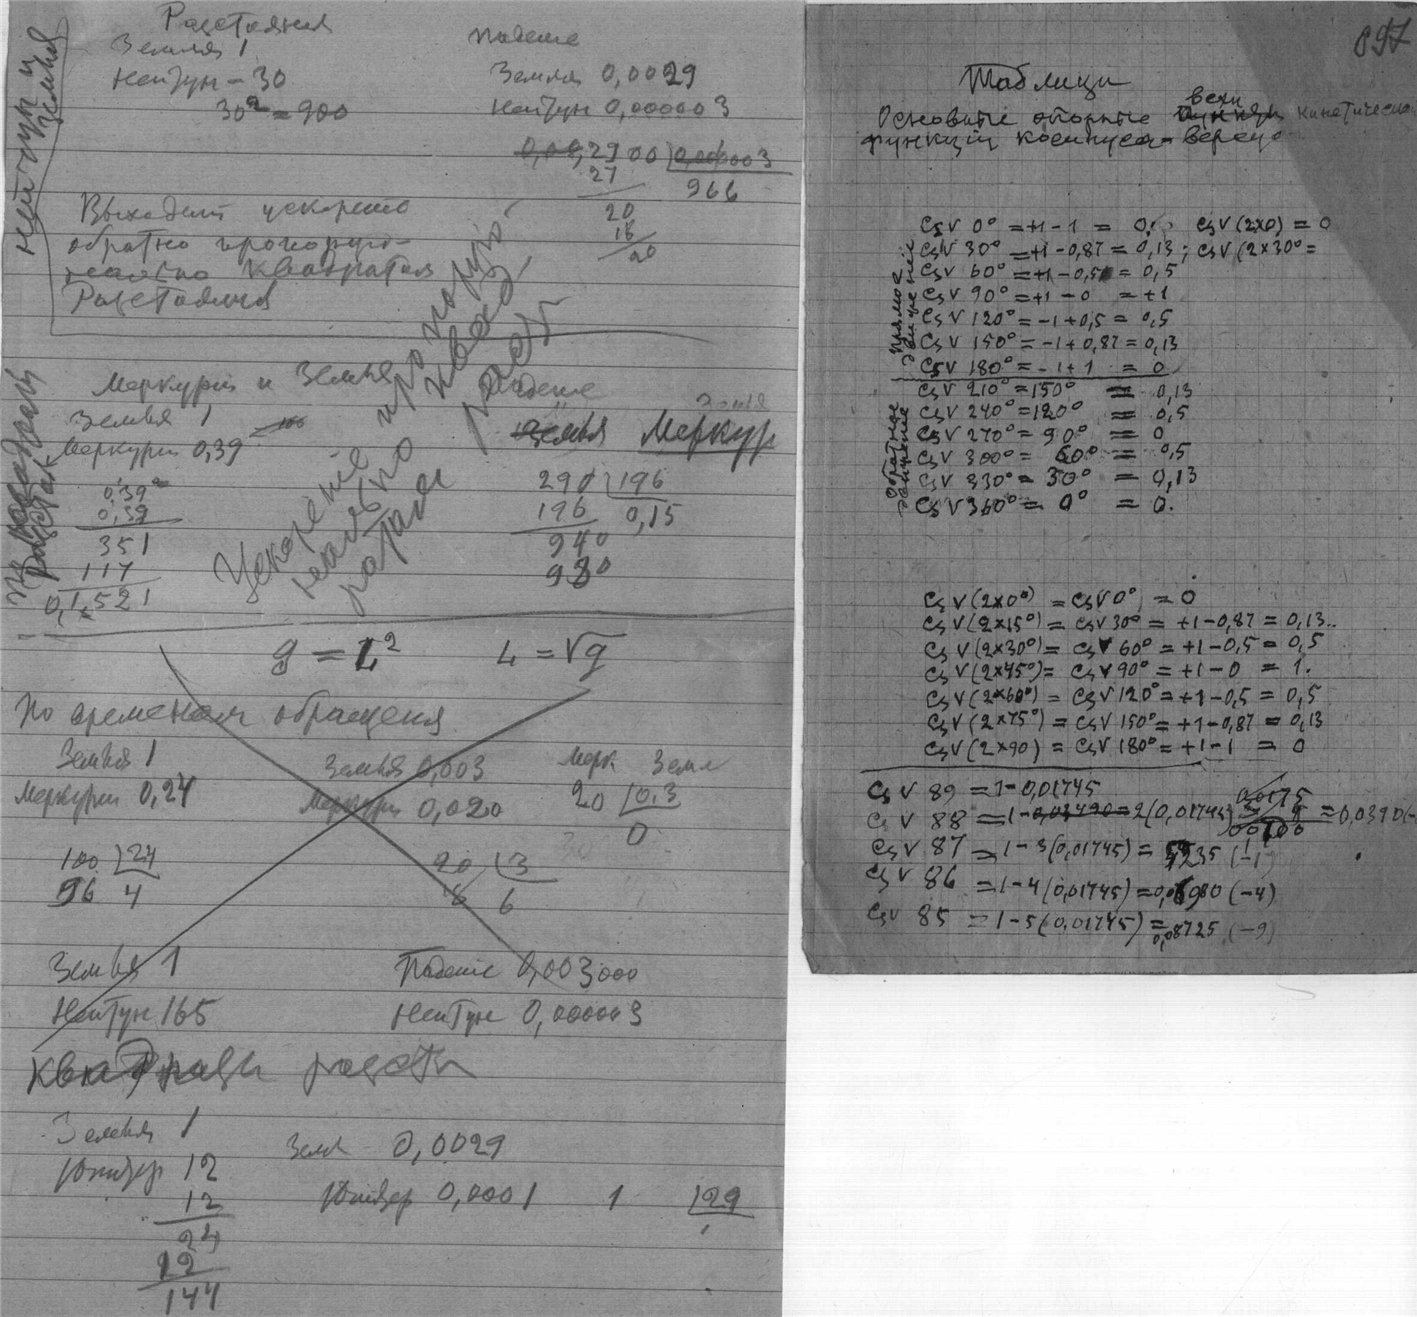 Расстояния
Земля 1
Нептун - 30
30² = 900
Падение
Земля 0,0029
Нептун 0,000003
Нептун и Земля
0,002900 | 0,000003
27
966
20
18
20
Выходит ускорение
обратно пропорцио-
нально квадратам
Расстояния
Ускорение пропорцио-
нально квад
ратам расст
Меркурий и Земля
Земля 1
Меркурий 0,39
0,39
0,39
351
117
0,1521
Падение
Земля
Земля Меркур
290 | 196
196 0,15
940
980
g = L² L = √g
По временам обращения
Земля 1
Меркурий 0,24
Земля 0,003
Меркурий 0,020
Мерк Земл
20 | 0,3
0
100 | 24
96 4
20 | 3
18 6
Земля 1
Нептун 165
Падение 0,003000
Нептун 0,000003
Квадраты расст
Земля 1
Юпитер 12
12
24
12
144
Земл 0,0029
Юпитер 0,0001 1 | 29
897
Таблици
всех
Основные опорные кинетическо
функций косинуса-версуо
Прямое движение
csv 0° = +1 - 1 = 0 csv (2x0) = 0
csv 30° = +1 - 0,87 = 0,13; csv (2x30° =
csv 60° = +1 - 0,5 = 0,5
csv 90° = +1 - 0 = +1
csv 120° = -1 + 0,5 = 0,5
csv 150° = -1 + 0,87 = 0,13
csv 180° = -1 + 1 = 0
Обратное движение
csv 210° = 150° = 0,13
csv 240° = 120° = 0,5
csv 270° = 90° = 0
csv 300° = 60° = 0,5
csv 330° = 30° = 0,13
csv 360° = 0° = 0.
csv (2x0°) = csv 0° = 0
csv (2x15°) = csv 30° = +1 - 0,87 = 0,13..
csv (2x30°) = csv 60° = +1 - 0,5 = 0,5
csv (2x45°) = csv 90° = +1 - 0 = 1.
csv (2x60°) = csv 120° = +1 - 0,5 = 0,5
csv (2x75°) = csv 150° = +1 - 0,87 = 0,13
csv (2x90) = csv 180° = +1 - 1 = 0
csv 89 = 1 - 0,01745
csv 88 = 1 - 0,03490 = 2(0,01745) = 0,0390(-
csv 87 = 1 - 3(0,01745) = 5235 (-1)
csv 86 = 1 - 4(0,01745) = 0,06980 (-4)
csv 85 = 1 - 5(0,01745) = 0,08725 (-9)